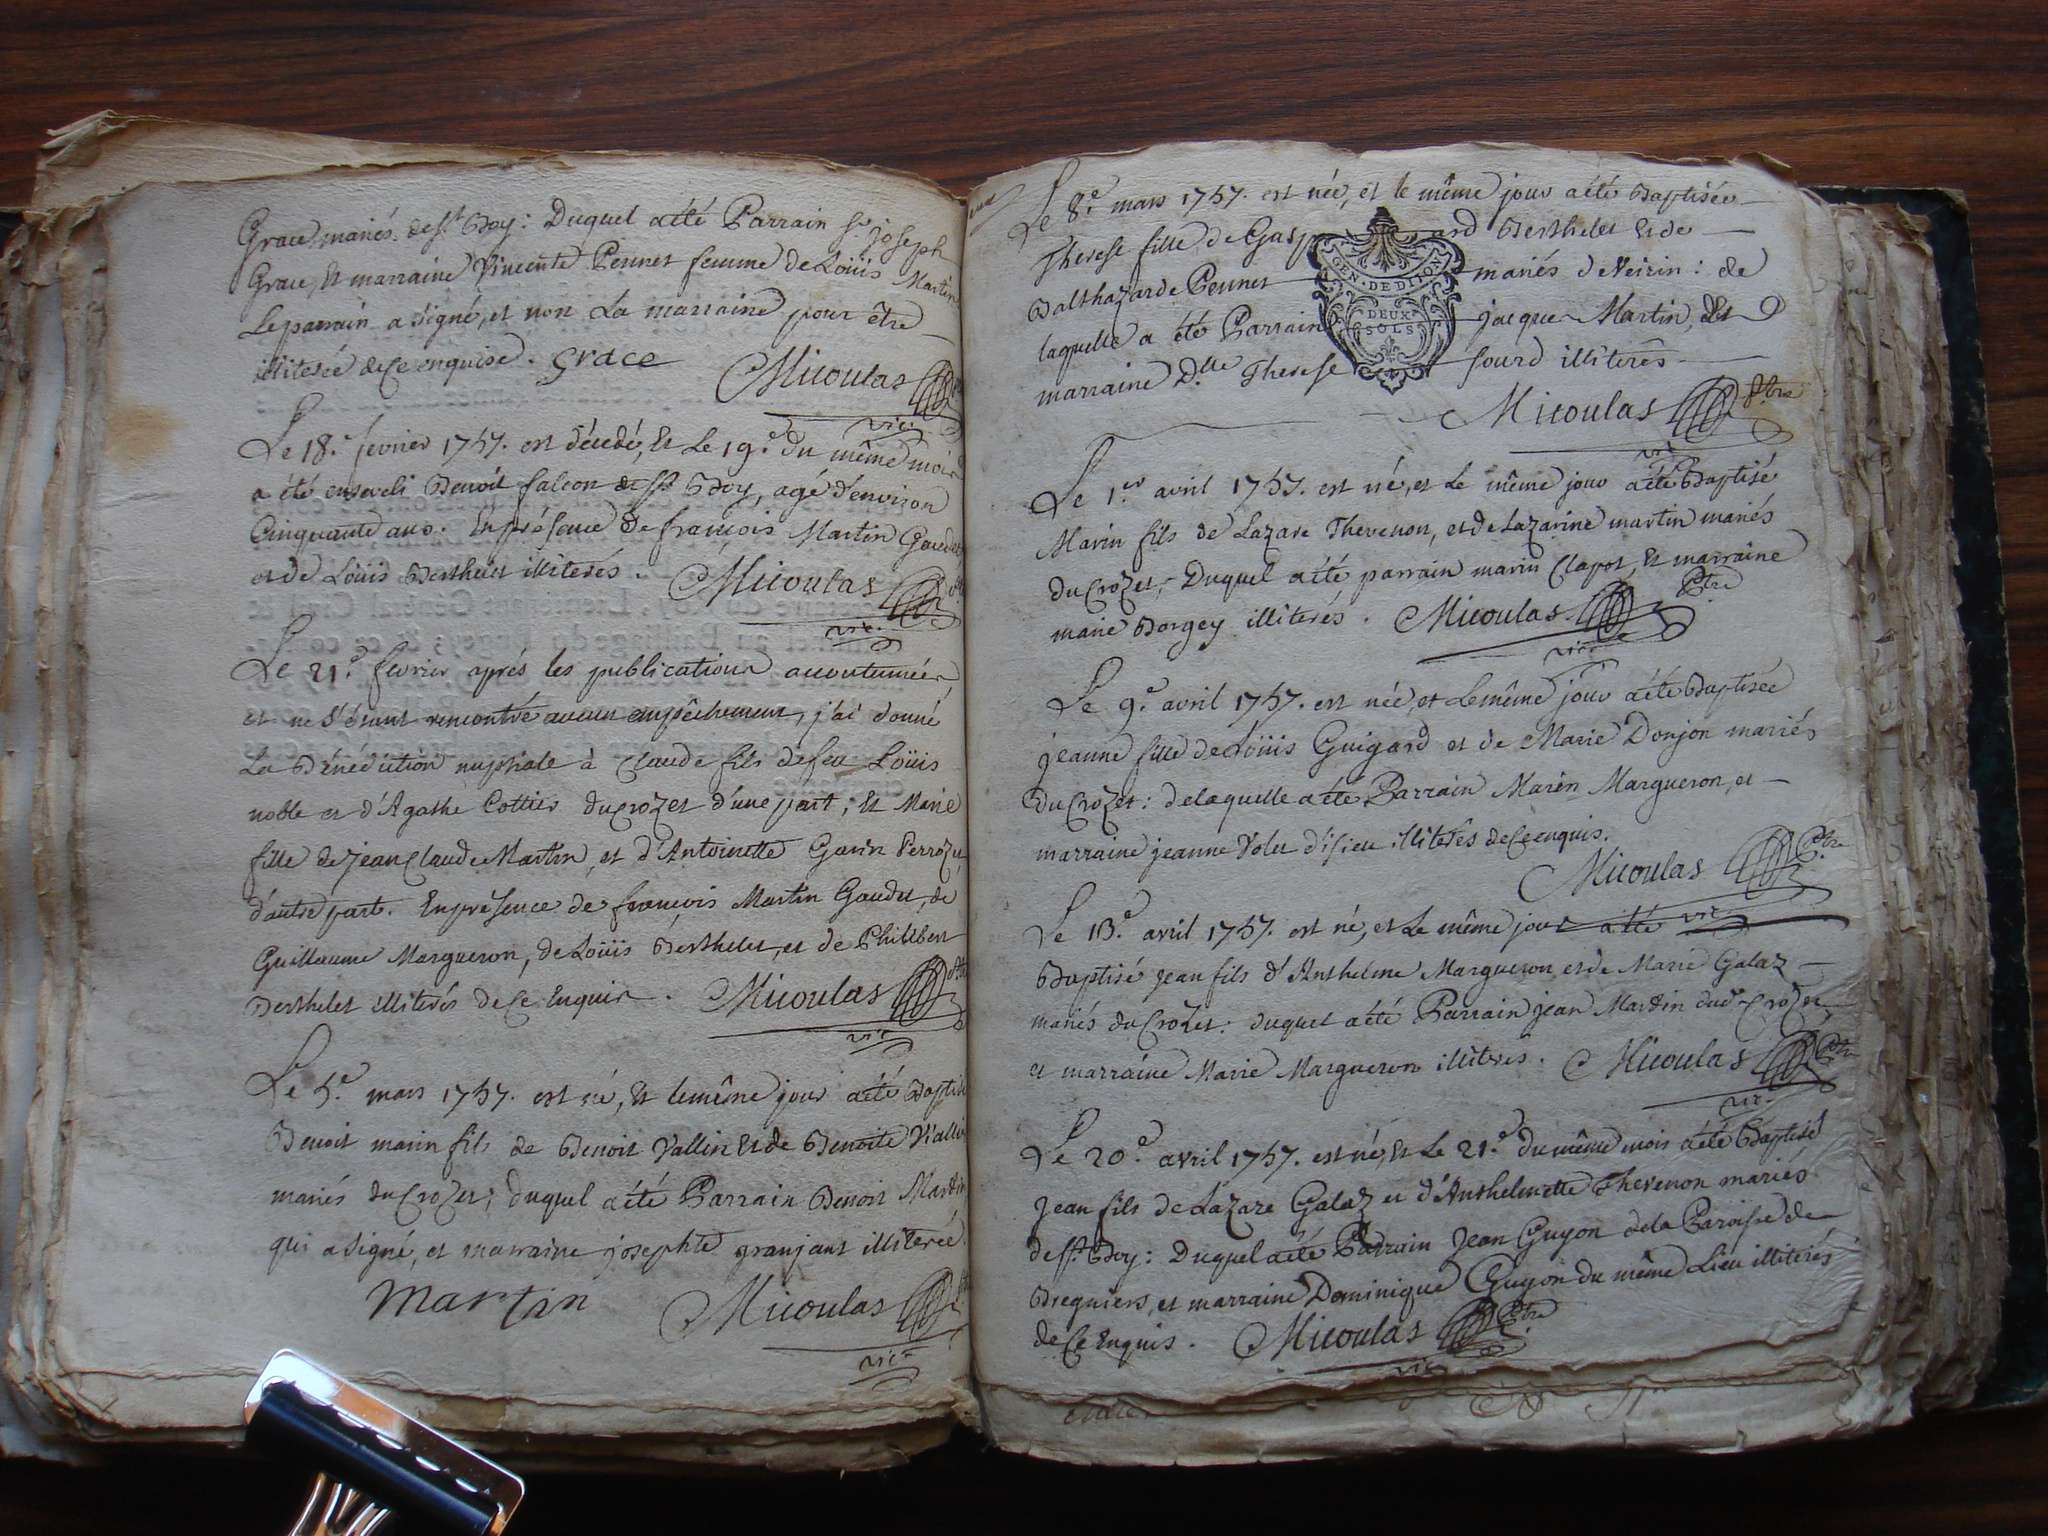 Grace, mariés de st. Boy: Duquel a été Parrain sr joseph
Grace, Et marraine Vincente Pennet femme de Loüis Martin
Le parrain a signé, et non La marraine pour être
illiterée de ce enquise. Grace Micoulas ptre
vic.
Le 18.e fevrier 1757. est décedé, Et Le 19.e du même mois
a été enseveli Benoit falcon de st. Boy, agé d'environ
Cinquante ans. En présence de françois Martin Gaudet
et de Loüis Berthelet illiterés. Micoulas ptre
vic.
Le 21.e fevrier aprés les publications accoutumées
et ne s'étant rencontré aucun empêchement, j'ai donné
La Bénédiction nuptiale à Claude fils de feu Loüis
noble et d'Agathe Cottier du Crozet d'une part; Et Marie
fille de jean Claude Martin, et d'Antoinette Garin Perrozet
d'autre part. En présence de françois Martin Gaudet, de
Guillaume Margueron, de Loüis Berthelet, et de Philibert
Berthelet illiterés de Ce Enquis. Micoulas ptre
vic.
Le 5.e mars 1757. est né, Et le même jour a été Baptisé
Benoit marin fils de Benoit Vallin Et de Benoite Viallin
mariés du Crozet; duquel a été Parrain Benoit Martin
qui a signé, et marraine josephte granjant illiterée.
Martin Micoulas ptre
vic.
Le 8.e mars 1757. est née, et le même jour a été Baptisée
Therese fille de Gaspard Berthelet Et de
Balthazarde Pennet mariés de Veirin: de
laquelle a été Parrain jacque Martin, Et
marraine D.lle Therese sourd illiterés
GEN. DE DIJON
DEUX
SOLS
Micoulas ptre
vic
Le 1.er avril 1757. est né, et Le même jour a été Baptisé
Marin fils de Lazare Thevenon, et de Lazarine martin mariés
du Crozet; Duquel a été parrain marin Clapot, Et marraine
marie Borgey illiterés. Micoulas Ptre
vic.
Le 9.e avril 1757. est née, et Le même jour a été Baptisée
jeanne fille de Loüis Guigard et de Marie Donjon mariés
du Crozet: de laquelle a été Parrain Marin Margueron, et
marraine jeanne Volet d'isieu illiterés de Ce enquis.
Micoulas Ptre
vic.
Le 13.e avril 1757. est né, et Le même jour a été
Baptisé jean fils d'Anthelme Margueron, et de Marie Galaz
mariés du Crozet: duquel a été Parrain jean Martin dud. Crozet,
et marraine Marie Margueron illiterés. Micoulas Ptre
vic.
Le 20.e avril 1757. est né, Et Le 21.e du même mois a été Baptisé
jean fils de Lazare Galaz et d'Anthelmette Thevenon mariés
de st. Boy: Duquel a été Parrain Jean Guyon de la Paroisse de
Bregniers, et marraine Dominique Guyon du même Lieu illiterés
de Ce Enquis. Micoulas Ptre
vic.